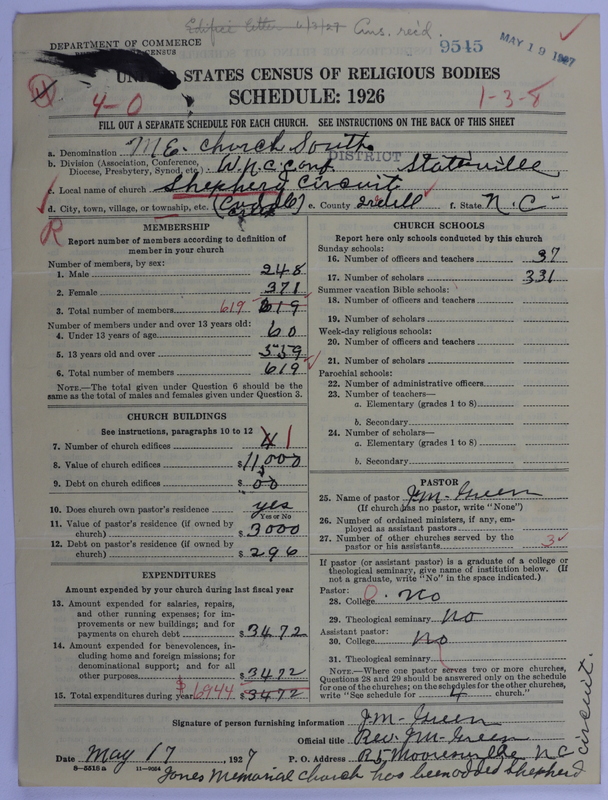 Edifice letter 6/3/27 Ans. rec'd.
DEPARTMENT OF COMMERCE
9545
MAY 19 1927
UNITED STATES CENSUS OF RELIGIOUS BODIES
4-0
SCHEDULE: 1926
1-3-8
FILL OUT A SEPARATE SCHEDULE FOR EACH CHURCH. SEE INSTRUCTIONS ON THE BACK OF THIS SHEET
a. Denomination M.E. Church South
b. Division (Association, Conference, Diocese, Presbytery, Synod, etc.) W.N.C. Conf. DISTRICT Statesville
c. Local name of church Shepherd Circuit
d. City, town, village, or township, etc. e. County Iredell f. State N.C.
R
MEMBERSHIP
Report number of members according to definition of
member in your church
Number of members, by sex:
1. Male 248
2. Female 371
3. Total number of members 619 619
Number of members under and over 13 years old:
4. Under 13 years of age 60
5. 13 years old and over 559
6. Total number of members 619
NOTE.—The total given under Question 6 should be
same as the total of males and females given under Question 3.
CHURCH BUILDINGS
See instructions, paragraphs 10 to 12
7. Number of church edifices 4 1
8. Value of church edifices $11,000
9. Debt on church edifices $ 00
10. Does church own pastor's residence yes
Yes or No
11. Value of pastor's residence (if owned by
church) $3000
12. Debt on pastor's residence (if owned by
church) $296
EXPENDITURES
Amount expended by your church during last fiscal year
13. Amount expended for salaries, repairs,
and other running expenses; for im-
provements or new buildings; and for
payments on church debt $3472
14. Amount expended for benevolences, in-
cluding home and foreign missions; for
denominational support; and for all
other purposes $3472
15. Total expenditures during year $6944 $3472
CHURCH SCHOOLS
Report here only schools conducted by this church
Sunday schools:
16. Number of officers and teachers 37
17. Number of scholars 331
Summer vacation Bible schools:
18. Number of officers and teachers
19. Number of scholars
Week-day religious schools:
20. Number of officers and teachers
21. Number of scholars
Parochial schools:
22. Number of administrative officers
23. Number of teachers—
a. Elementary (grades 1 to 8)
b. Secondary
24. Number of scholars—
a. Elementary (grades 1 to 8)
b. Secondary
PASTOR
25. Name of pastor J.M. Green
(If church has no pastor, write "None")
26. Number of ordained ministers, if any, em-
ployed as assistant pastors
27. Number of other churches served by the
pastor or his assistants 3
If pastor (or assistant pastor) is a graduate of a college or
theological seminary, give name of institution below. (If
not a graduate, write "No" in the space indicated.)
Pastor:
28. College No
29. Theological seminary No
Assistant pastor:
30. College No
31. Theological seminary
NOTE.—Where one pastor serves two or more churches,
Questions 28 and 29 should be answered only on the schedule
for one of the churches; on the schedules for the other churches,
write "See schedule for 4 church."
Signature of person furnishing information J.M. Green
Official title Rev. J.M. Green
Date May 17 1927 P. O. Address R5 Mooresville N.C.
8—5518a 11—9054
Jones Memorial church has been added Shepherd
circuit.